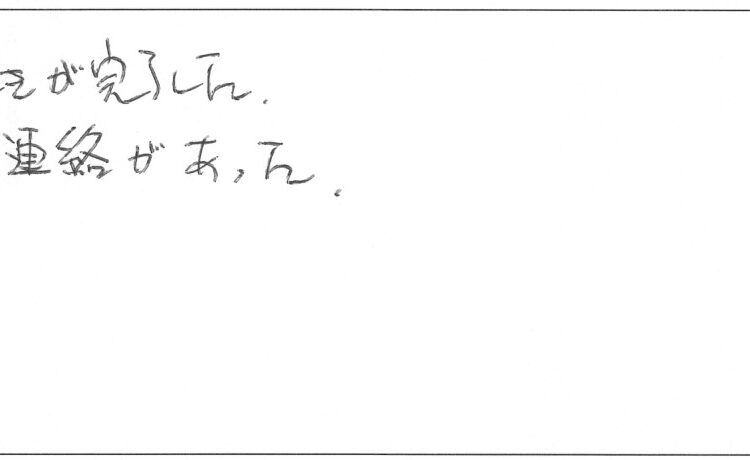 きが完了した.
連絡があった.